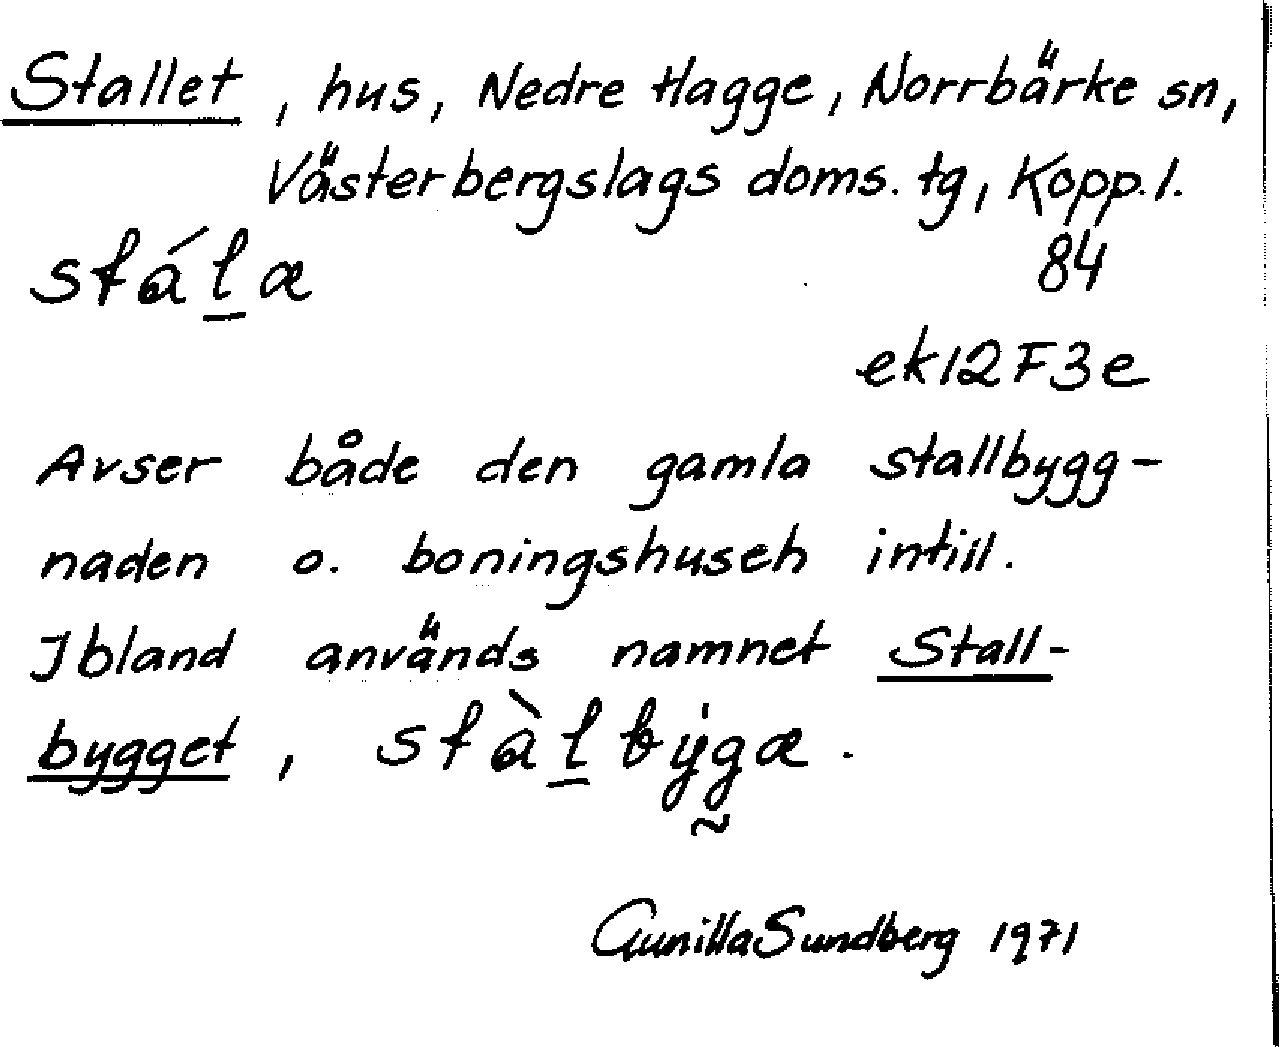 Stallet, hus, Nedre Hagge, Norrbärke sn,
Västerbergslags doms. tg, Kopp. l.
stálæ 84
ek12F3e
Avser både den gamla stallbygg-
naden o. boningshuseh intill.
Ibland används namnet Stall-
bygget, stàlbýgæ.
Gunilla Sundberg 1971